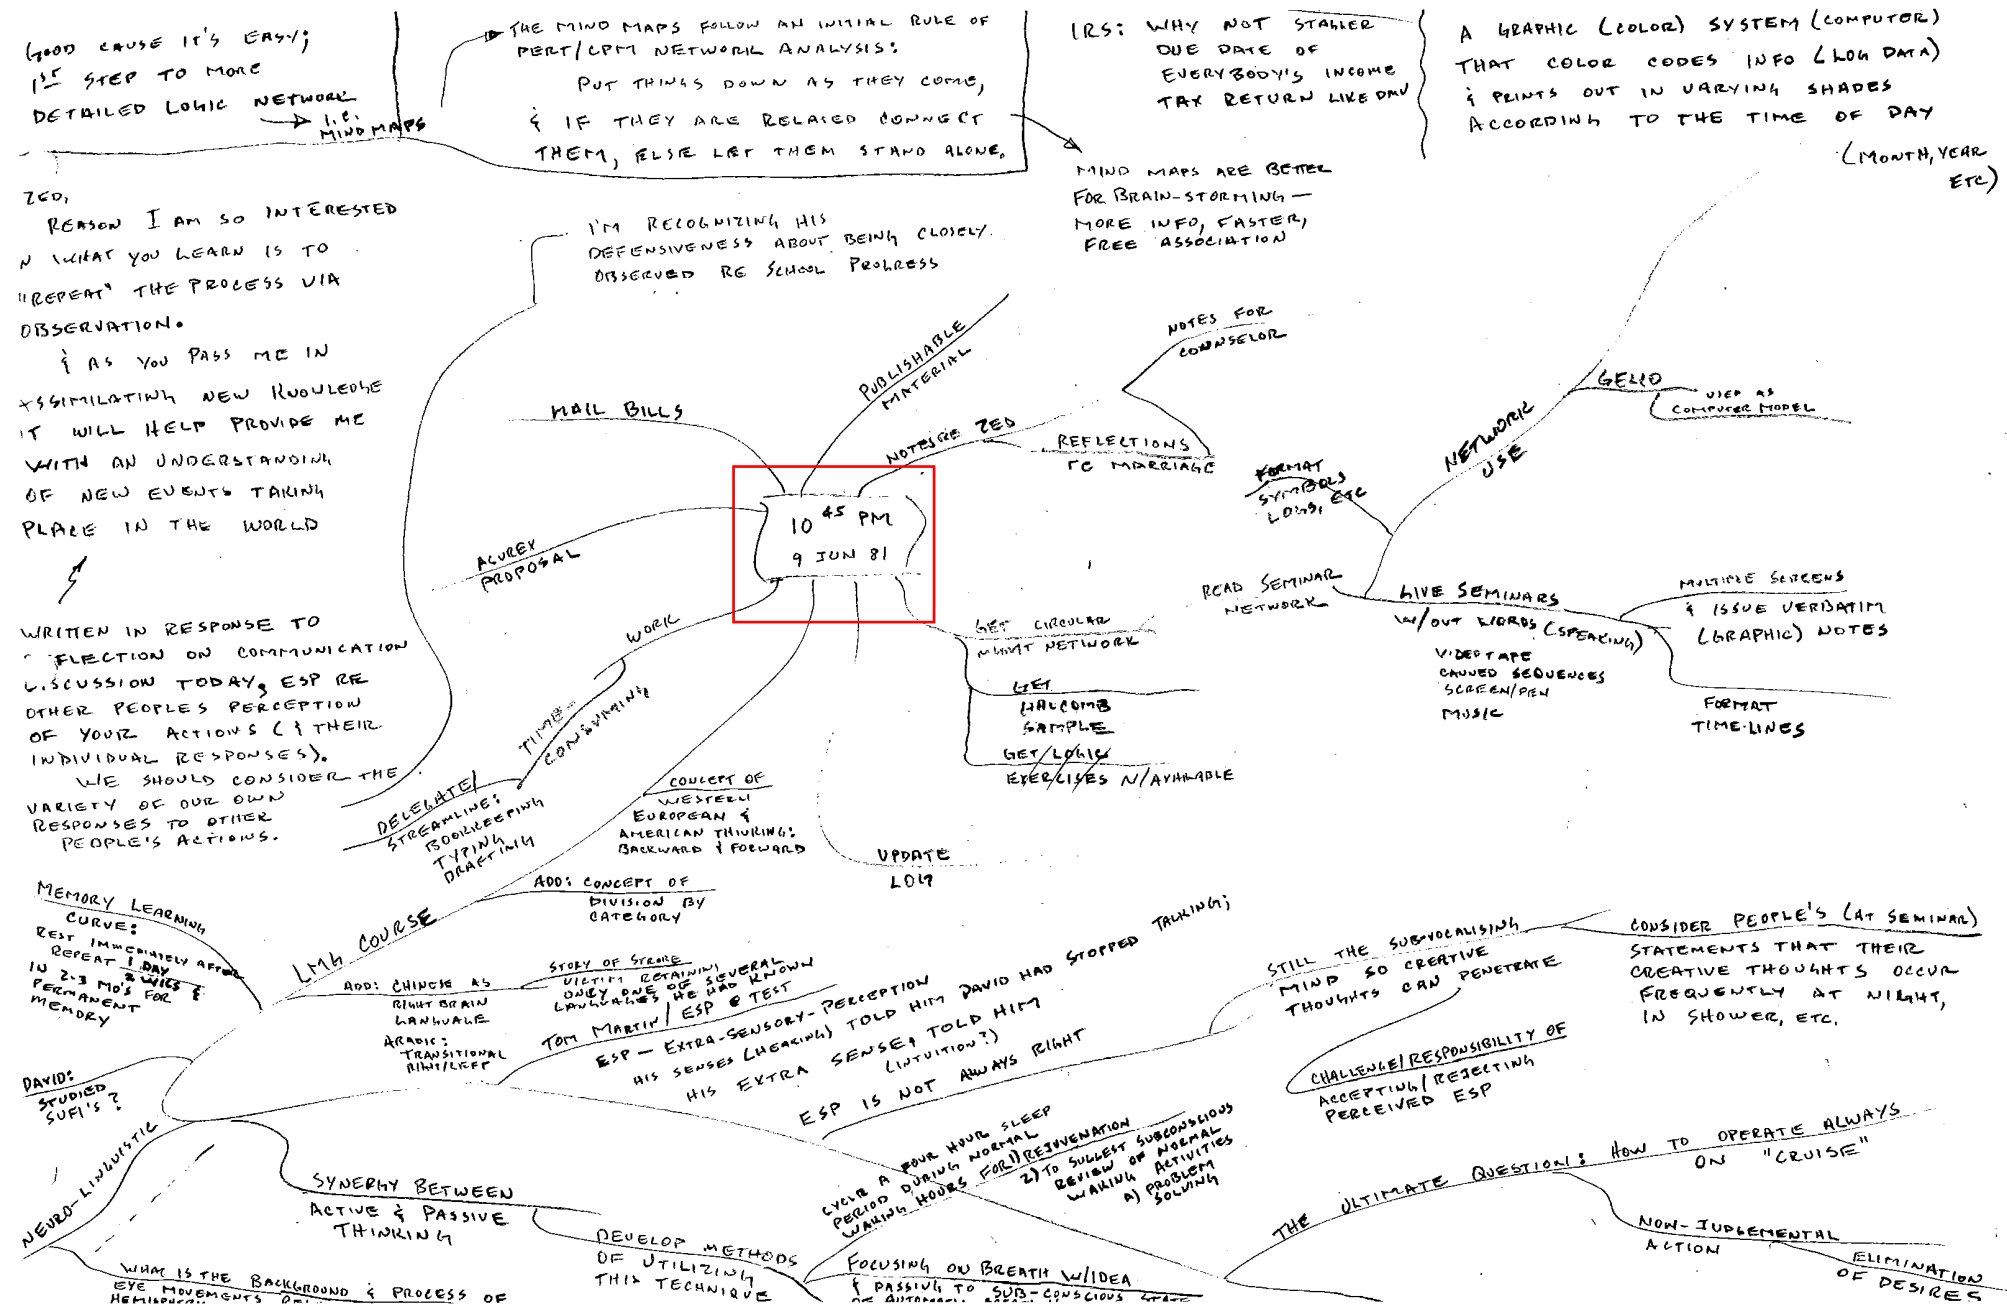 GOOD CAUSE IT'S EASY;
1ST STEP TO MORE
DETAILED LOGIC NETWORK
I.E.
MIND MAPS
THE MIND MAPS FOLLOW AN INITIAL RULE OF
PERT/CPM NETWORK ANALYSIS:
PUT THINGS DOWN AS THEY COME,
& IF THEY ARE RELATED CONNECT
THEM, ELSE LET THEM STAND ALONE.
IRS: WHY NOT STAGGER
DUE DATE OF
EVERYBODY'S INCOME
TAX RETURN LIKE DMV
A GRAPHIC (COLOR) SYSTEM (COMPUTER)
THAT COLOR CODES INFO (LOG DATA)
& PRINTS OUT IN VARYING SHADES
ACCORDING TO THE TIME OF DAY
(MONTH, YEAR
ETC)
MIND MAPS ARE BETTER
FOR BRAIN-STORMING —
MORE INFO, FASTER,
FREE ASSOCIATION
ZED,
REASON I AM SO INTERESTED
N WHAT YOU LEARN IS TO
"REPEAT" THE PROCESS VIA
OBSERVATION.
& AS YOU PASS ME IN
ASSIMILATING NEW KNOWLEDGE
IT WILL HELP PROVIDE ME
WITH AN UNDERSTANDING
OF NEW EVENTS TAKING
PLACE IN THE WORLD
WRITTEN IN RESPONSE TO
FLECTION ON COMMUNICATION
DISCUSSION TODAY, ESP RE
OTHER PEOPLES PERCEPTION
OF YOUR ACTIONS (& THEIR
INDIVIDUAL RESPONSES).
WE SHOULD CONSIDER THE
VARIETY OF OUR OWN
RESPONSES TO OTHER
PEOPLE'S ACTIONS.
I'M RECOGNIZING HIS
DEFENSIVENESS ABOUT BEING CLOSELY
OBSERVED RE SCHOOL PROGRESS
PUBLISHABLE
MATERIAL
MAIL BILLS
NOTES RE ZED
NOTES FOR
COUNSELOR
REFLECTIONS
RE MARRIAGE
10 45 PM
9 JUN 81
ACUREX
PROPOSAL
WORK
TIME-
CONSUMING
DELEGATE/
STREAMLINE:
BOOKKEEPING
TYPING
DRAFTING
GET CIRCULAR
MGMT NETWORK
GET
HALCOMB
SAMPLE
GET LOGIC
EXERCISES N/AVAILABLE
READ SEMINAR
NETWORK
FORMAT
SYMBOLS
LOGS, ETC
NETWORK
USE
GELLO
USED AS
COMPUTER MODEL
LIVE SEMINARS
W/OUT WORDS (SPEAKING)
VIDEOTAPE
CANNED SEQUENCES
SCREEN/PEN
MUSIC
MULTIPLE SCREENS
& ISSUE VERBATIM
(GRAPHIC) NOTES
FORMAT
TIME-LINES
UPDATE
LOG
LMG COURSE
CONCEPT OF
WESTERN
EUROPEAN &
AMERICAN THINKING:
BACKWARD & FORWARD
ADD: CONCEPT OF
DIVISION BY
CATEGORY
MEMORY LEARNING
CURVE:
REST IMMEDIATELY AFTER
REPEAT 1 DAY
2 WKS &
IN 2-3 MO'S FOR
PERMANENT
MEMORY
ADD: CHINESE AS
RIGHT BRAIN
LANGUAGE
ARABIC:
TRANSITIONAL
RIGHT/LEFT
STORY OF STROKE
VICTIM RETAINING
ONLY ONE OF SEVERAL
LANGUAGES HE HAD KNOWN
DAVID:
STUDIED
SUFI'S?
TOM MARTIN/ESP @ TEST
ESP — EXTRA-SENSORY-PERCEPTION
HIS SENSES (HEARING) TOLD HIM DAVID HAD STOPPED TALKING;
HIS EXTRA SENSE, TOLD HIM
(INTUITION?)
ESP IS NOT ALWAYS RIGHT
STILL THE SUBVOCALISING
MIND SO CREATIVE
THOUGHTS CAN PENETRATE
CONSIDER PEOPLE'S (AT SEMINAR)
STATEMENTS THAT THEIR
CREATIVE THOUGHTS OCCUR
FREQUENTLY AT NIGHT,
IN SHOWER, ETC.
CHALLENGE/RESPONSIBILITY OF
ACCEPTING/REJECTING
PERCEIVED ESP
NEURO-LINGUISTIC
SYNERGY BETWEEN
ACTIVE & PASSIVE
THINKING
DEVELOP METHODS
OF UTILIZING
THIS TECHNIQUE
CYCLE A FOUR HOUR SLEEP
PERIOD DURING NORMAL
WAKING HOURS FOR 1) REJUVENATION
2) TO SUGGEST SUBCONSCIOUS
REVIEW OF NORMAL
WAKING ACTIVITIES
A) PROBLEM
SOLVING
FOCUSING ON BREATH W/IDEA
& PASSING TO SUB-CONSCIOUS STATE
THE ULTIMATE QUESTION: HOW TO OPERATE ALWAYS
ON "CRUISE"
NON-JUDGEMENTAL
ACTION
ELIMINATION
OF DESIRES
WHAT IS THE BACKGROUND & PROCESS OF
EYE MOVEMENTS